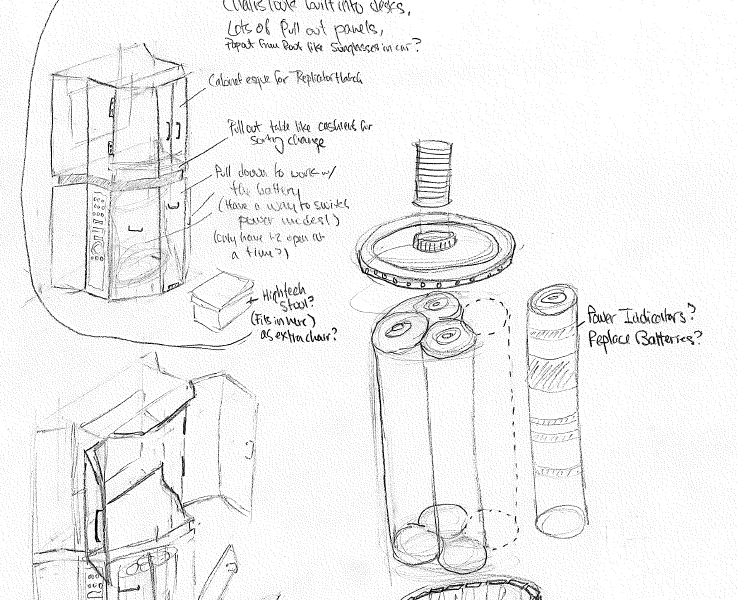 Chairs look built into desks,
Lots of Pull out panels,
Popout from Roof like Sunglasses in car?
Cabinet esque for Replicator Hatch
Pull out table like cashiers for
sorting change
Pull down to work w/
the battery
(Have a way to switch
power modes!)
(Only have 1-2 open at
a time?)
High tech
stool?
(Fits in here)
as extra chair?
Power Indicators?
Replace Batteries?